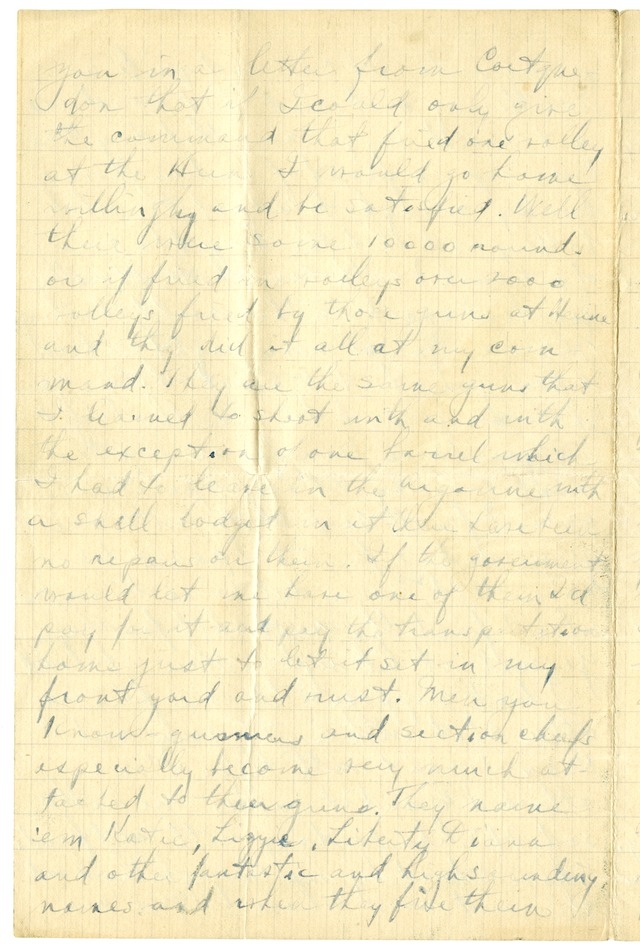 you in a letter from Coetqui-
don that if I could only give
the command that fired one volley
at the Hun I would go home
willingly and be satisfied. Well
there were some 10000 rounds
or if fired in volleys over 2000
volleys fired by those guns at
and they did it all at my com
mand. They are the same guns that
I learned to shoot with and with
the exception of one barrel which
I had to leave in the Argonne with
a shell lodged in it there have been
no repairs on them. If the government
would let me have one of them I'd
pay for it and pay the transportation
home just to let it set in my
front yard and rust. Men you
know - gunners and section chiefs
especially become very much at-
tached to their guns. They name
'em Katie, Lizzie, Liberty Diana
and other fantastic and highsounding
names and when they fire them